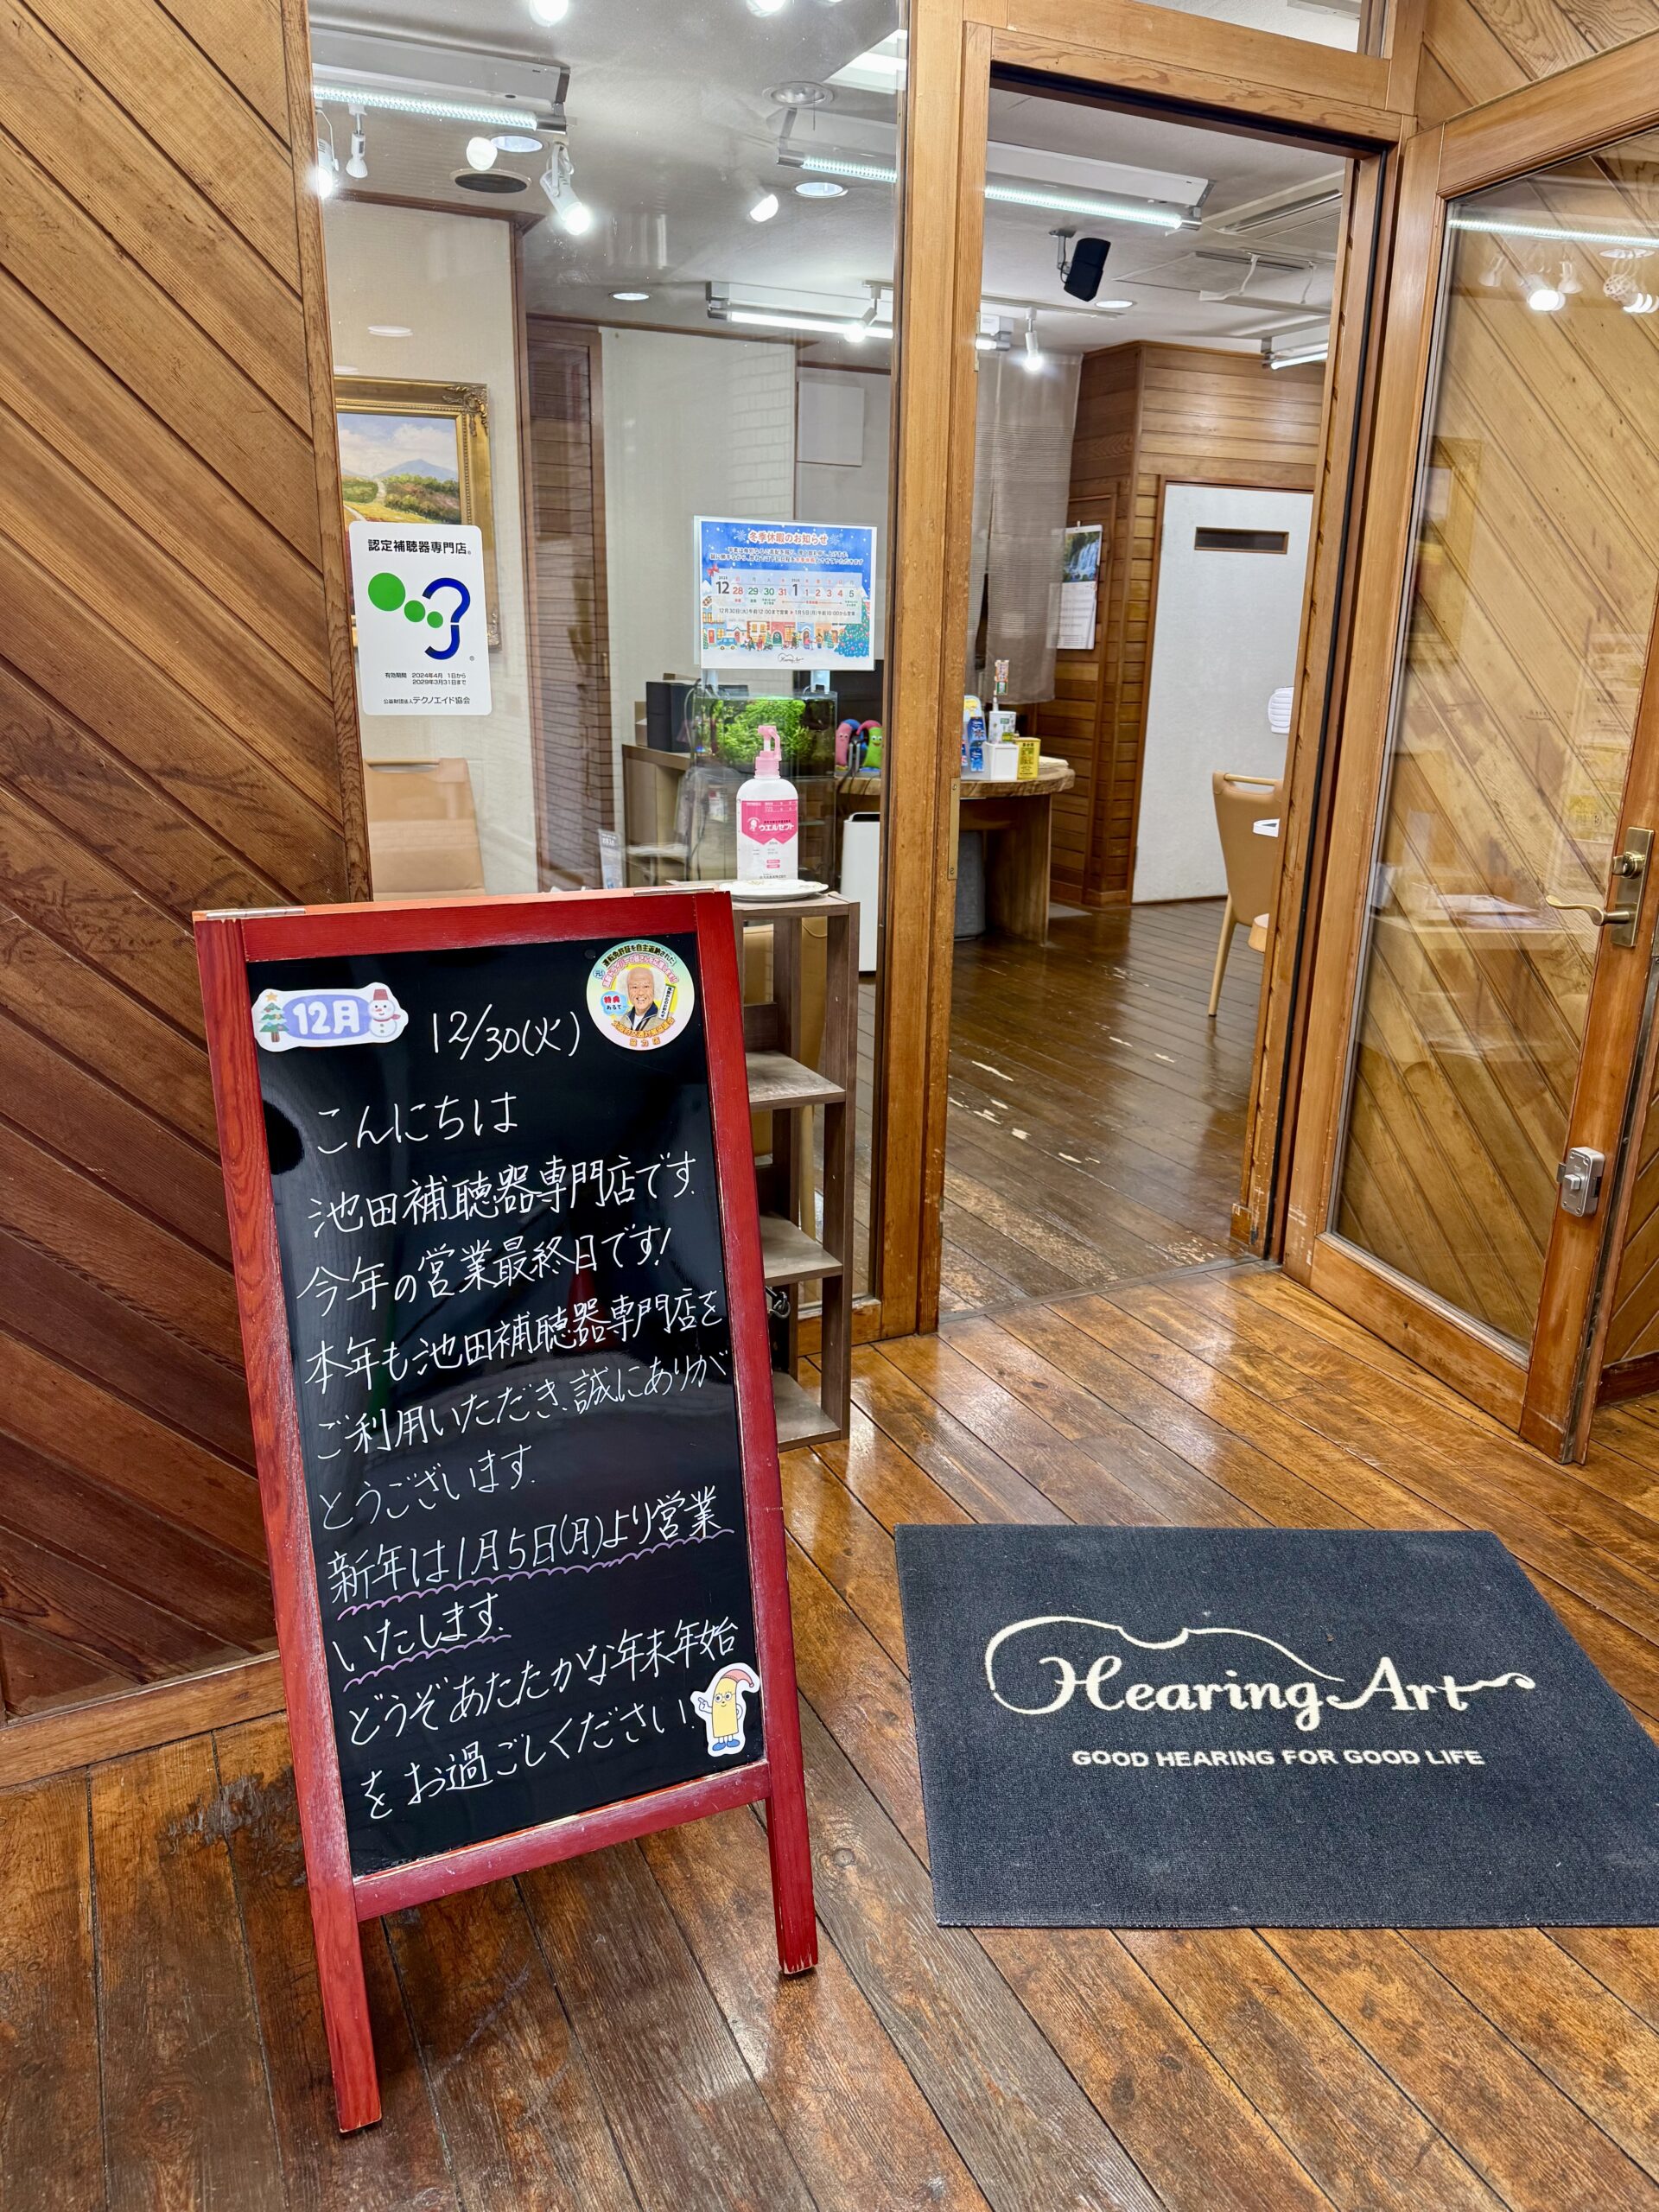 認定補聴器専門店®
有効期間 2024年4月 1日から
2029年3月31日まで
公益財団法人テクノエイド協会
冬季休暇のお知らせ
12 28 29 30 31 1 1 2 3 4 5
ウエルセプト
12月
12/30(火)
こんにちは
池田補聴器専門店です.
今年の営業最終日です!
本年も池田補聴器専門店を
ご利用いただき、誠にありが
とうございます.
新年は1月5日(月)より営業
いたします.
どうぞあたたかな年末年始
をお過ごしください!
Hearing Art
GOOD HEARING FOR GOOD LIFE